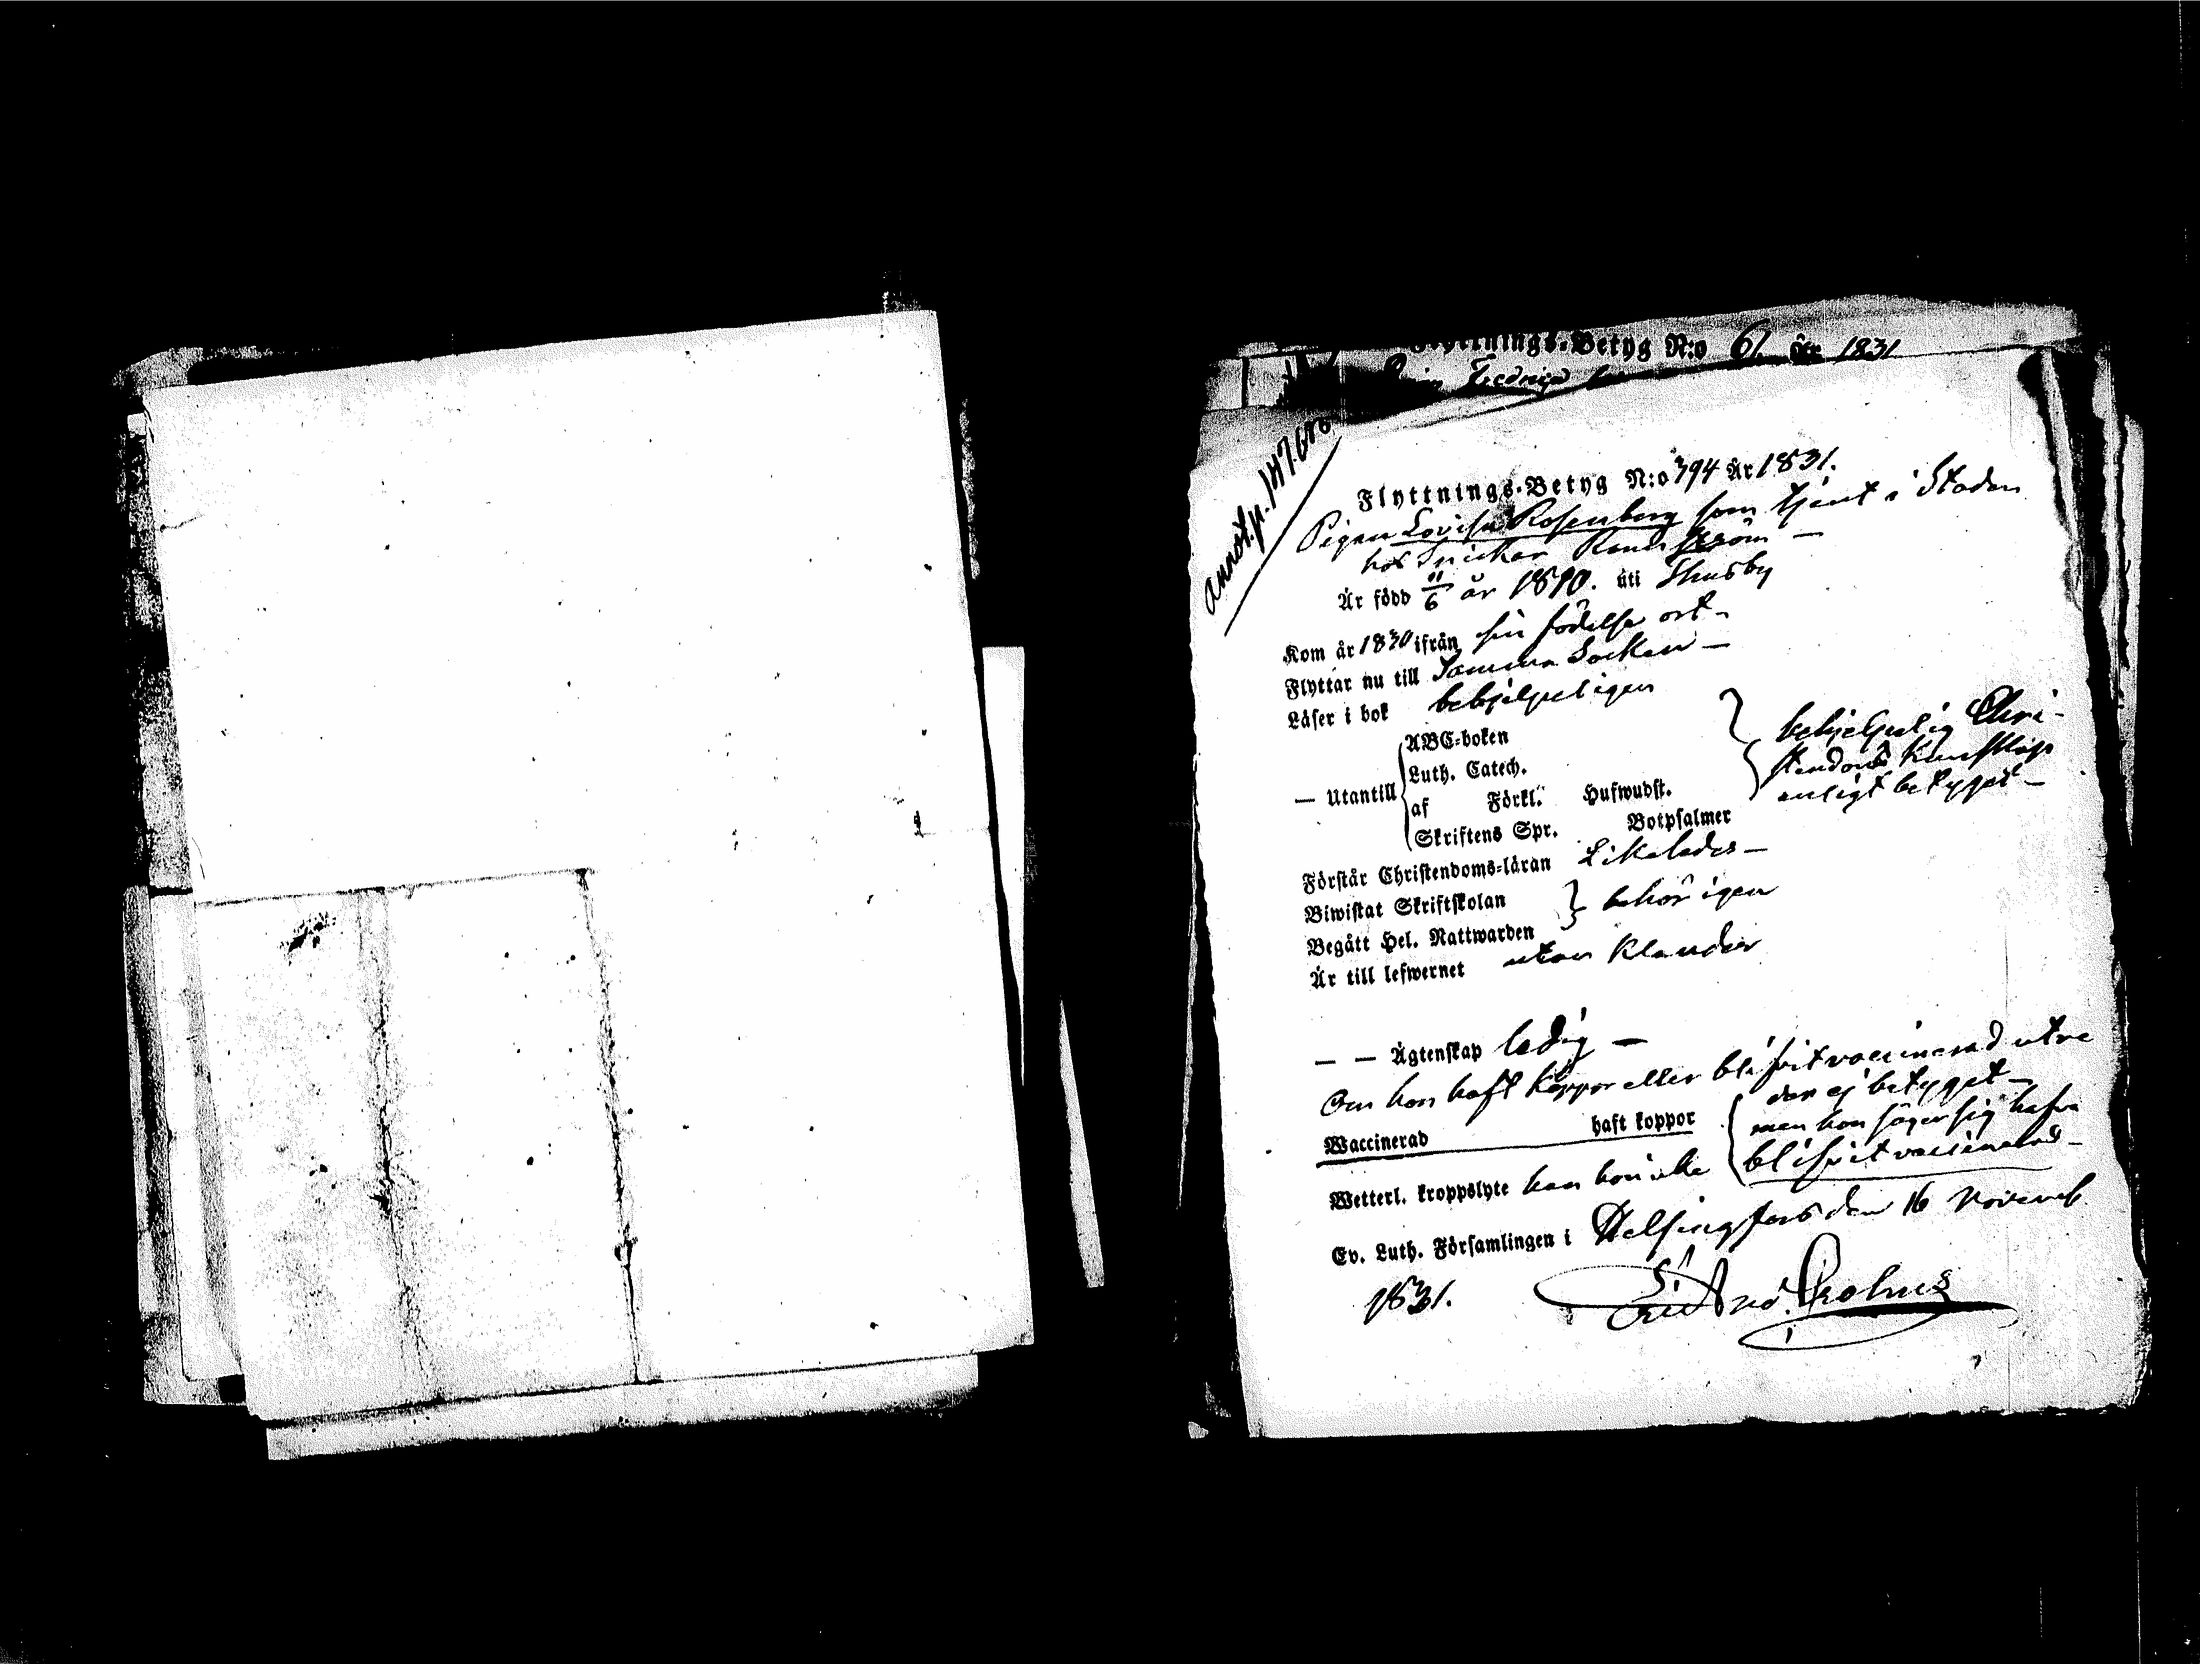 Flyttnings-Betyg N:o 61 år 1831
annot. p. 147
Flyttnings-Betyg N:o 394 År 1831.
Pigan Lovisa Rosenberg som tjent i Staden
hos Snickar
Är född 11/6 år 1810. uti Thusby
Kom år 1830 ifrån sin födelse ort –
Flyttar nu till Samma Socken –
Läser i bok behjelpeligen
ABC-boken
Luth. Catech.
— Utantill
af Förkl. Hufwudst.
Skriftens Spr. Botpsalmer
behjelpelig Chri-
stendoms Kunskap
enligt betyget –
Förstår Christendoms-läran Likaledes –
Biwistat Skriftskolan
behörigen
Begått Hel. Nattwarden
Är till lefwernet utan klander
— — Ägtenskap ledig –
Om hon haft koppor eller blifvit vaccinerad utvi
sar ej betyget –
Waccinerad haft koppor
men hon säger sig hafva
blifvit vaccinerad –
Wetterl. kroppslyte har hon icke
Ev. Luth. Församlingen i Helsingfors den 16 Novemb.
1831.